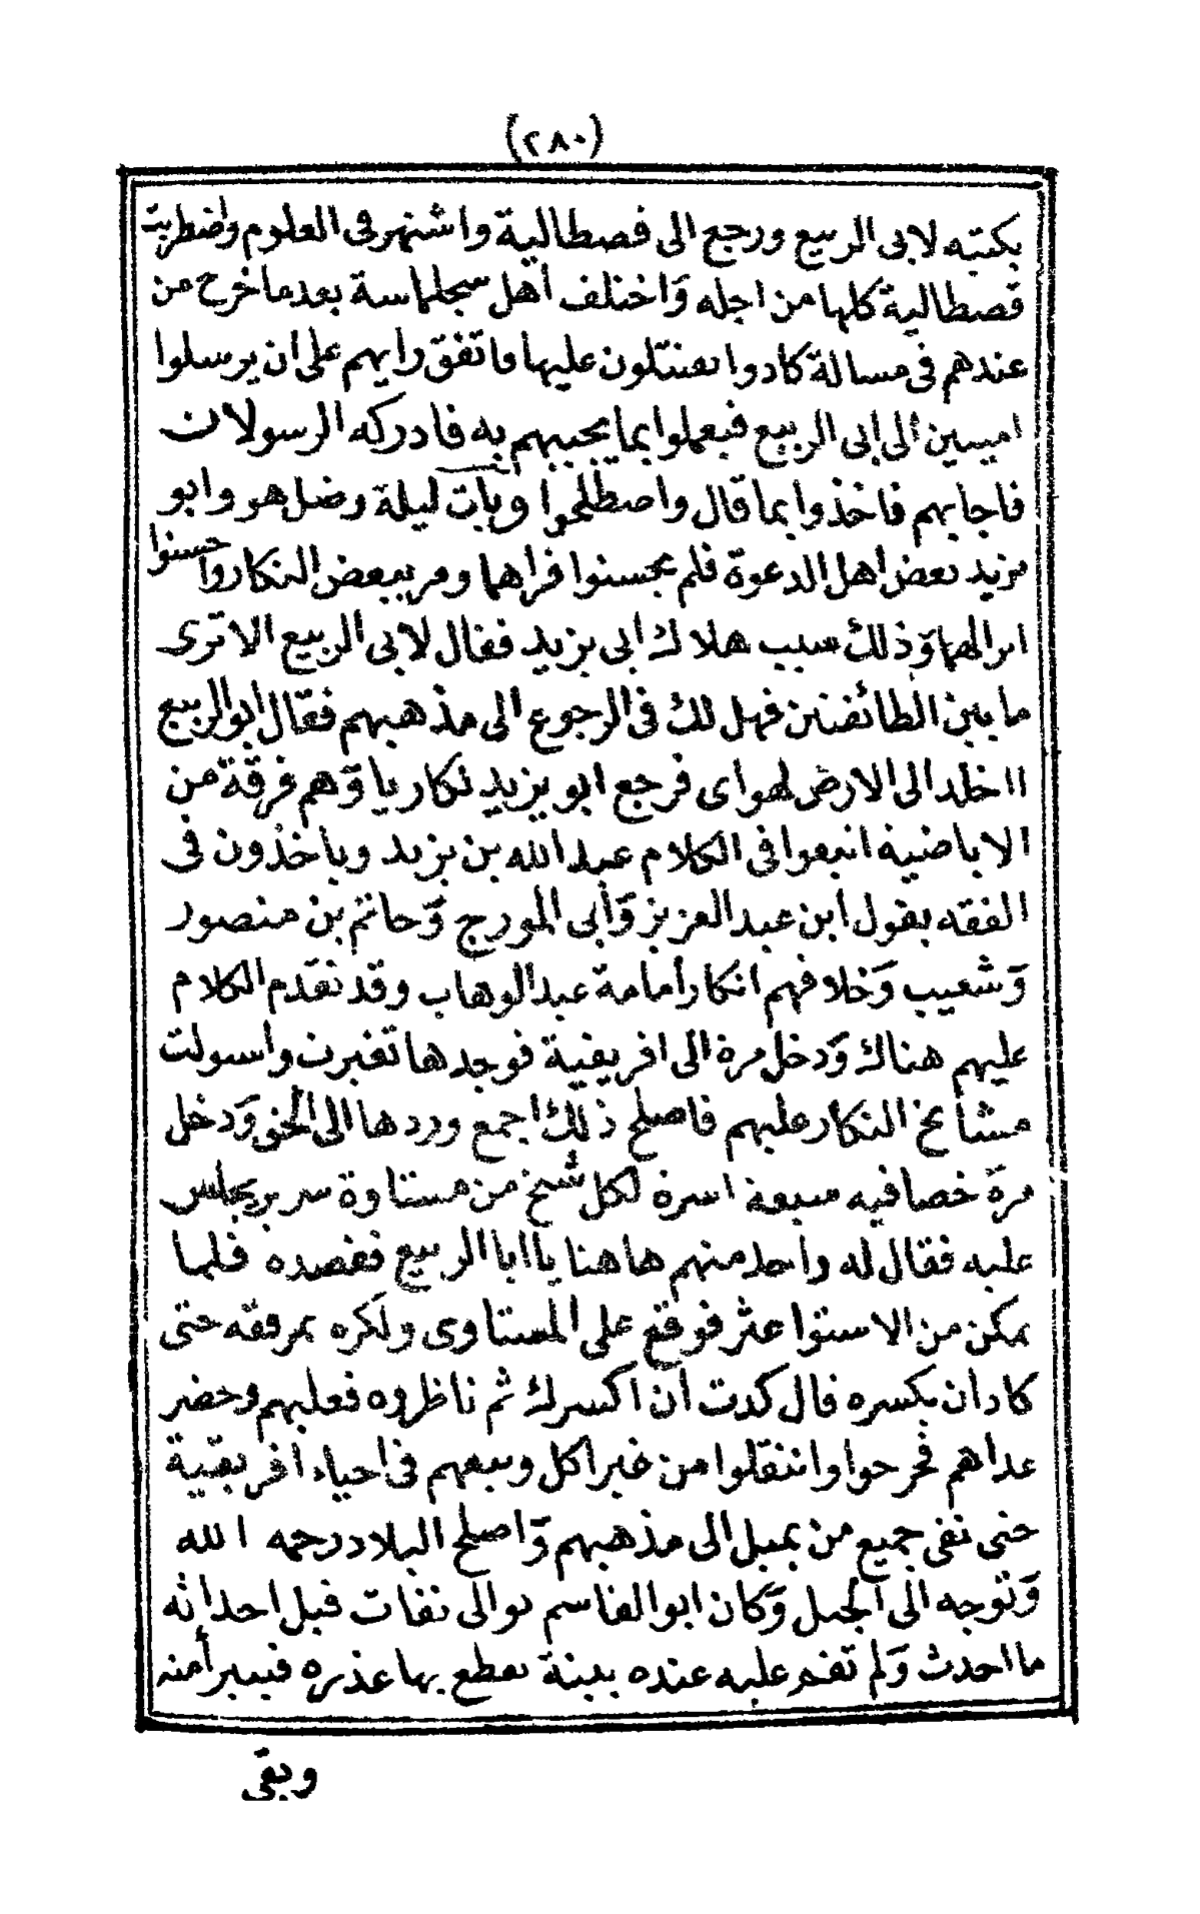 (٢٨٠)
بكتبه لابى الربيع ورجع الى قصطالية واشتهر فى العلوم واضطربت
قصطالية كلها من اجله وَاختلف اهل سجلماسة بعد ما خرج من
عندهم فى مسالة كادوا يقتتلون عليها فاتفق رايهم على ان يرسلوا
امينين الى ابى الربيع فيعملوا بما يجيبهم به فادركه الرسولان
فاجابهم فاخذوا بما قال واصطلحوا وبات ليلة وضل هو وابو
يزيد بعض اهل الدعوة فلم يحسنوا قراهما ومر ببعض النكار واحسنوا
انزالهما وَذلك سبب هلاك ابى يزيد فقال لابى الربيع الا ترى
ما بين الطائفتين فهل لك فى الرجوع الى مذهبهم فقال ابو الربيع
ااخلد الى الارض لهواى فرجع ابو يزيد نكاريا وَهم فرقة من
الاباضية اتبعوا فى الكلام عبد الله بن يزيد وياخذون فى
الفقه بقول ابن عبد العزيز وَأبى المورج وَحاتم بن منصور
وَشعيب وَخلافهم انكار أمامة عبد الوهاب وقد تقدم الكلام
عليهم هناك وَدخل مرة الى افريقية فوجدها تغيرت واسولت
مشائخ النكار عليهم فاصلح ذلك اجمع وردها الى الحق وَدخل
مرة خصا فيه سبعة اسرة لكل شيخ من مستاوة سرير يجلس
عليه فقال له واحد منهم هاهنا يا ابا الربيع فقصده فلما
تمكن من الاستوا عثر فوقع على المستاوى ولكزه بمرفقه حتى
كاد ان يكسره قال كدت ان اكسرك ثم ناظروه فغلبهم وحضر
غداهم فخرجوا وانتقلوا من غير اكل وتبعهم فى احياء افريقية
حتى نفى جميع من يميل الى مذهبهم وَاصلح البلاد رحمه الله
وَتوجه الى الجبل وَكان ابو القاسم يوالى نفات قبل احداثه
ما احدث وَلم تقم عليه عنده بينة يقطع بها عذره فيبرأ منه
وبقى